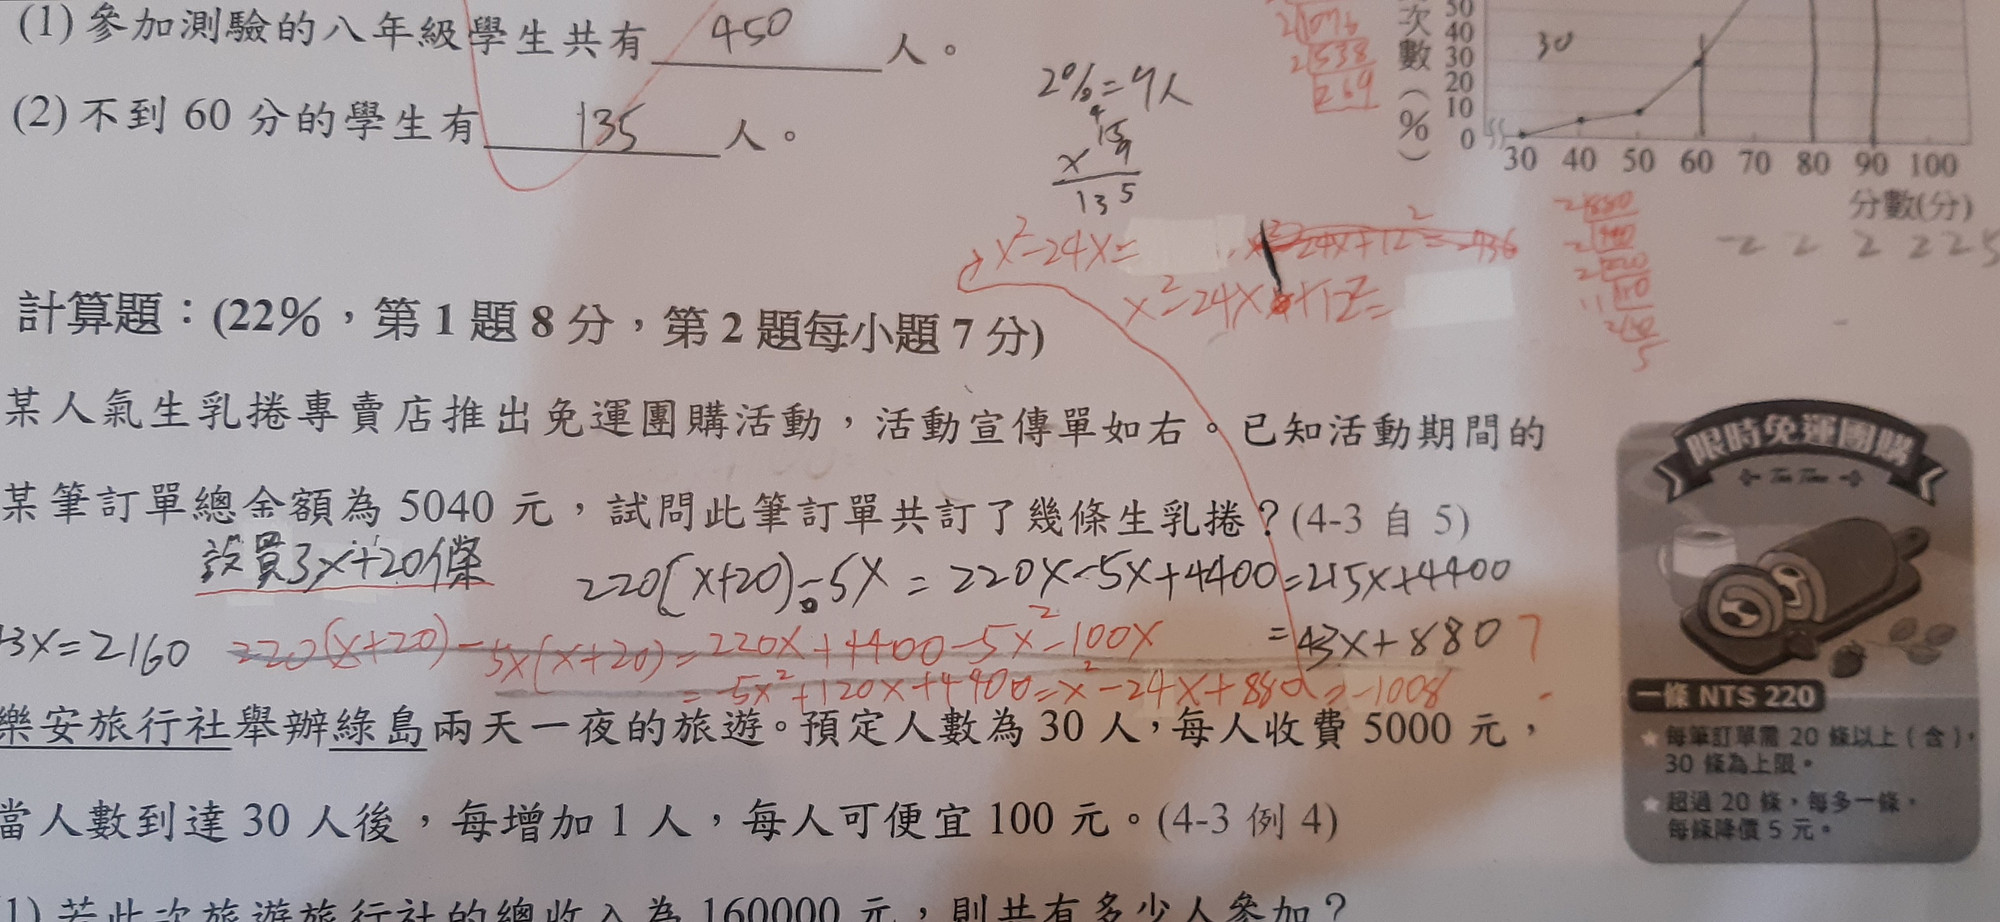 (1) 參加測驗的八年級學生共有 450 人。
(2) 不到 60 分的學生有 135 人。
2%=9人
15
× 9
135
次數(%)
50
40
30
20
10
0
30
30 40 50 60 70 80 90 100
分數(分)
2 1076
2 538
269
2 880
2 440
2 220
110
-2 2 2 2 2 5
x²-24x=
x²-24x+12²=-936
x²-24x+12²=
計算題：(22%，第 1 題 8 分，第 2 題每小題 7 分)
某人氣生乳捲專賣店推出免運團購活動，活動宣傳單如右。已知活動期間的
某筆訂單總金額為 5040 元，試問此筆訂單共訂了幾條生乳捲？(4-3 自 5)
設買3x+20條
220(x+20)-5x=220x-5x+4400=215x+4400
=43x+880?
43x=2160
220(x+20)-5x(x+20)=220x+4400-5x²-100x
=-5x²+120x+4400=x²-24x+880=-1008
限時免運團購
Tea Time
一條 NT$ 220
★ 每筆訂單需 20 條以上（含），
30 條為上限。
★ 超過 20 條，每多一條，
每條降價 5 元。
樂安旅行社舉辦綠島兩天一夜的旅遊。預定人數為 30 人，每人收費 5000 元，
當人數到達 30 人後，每增加 1 人，每人可便宜 100 元。(4-3 例 4)
1) 若此次旅遊旅行社的總收入為 160000 元，則共有多少人參加？